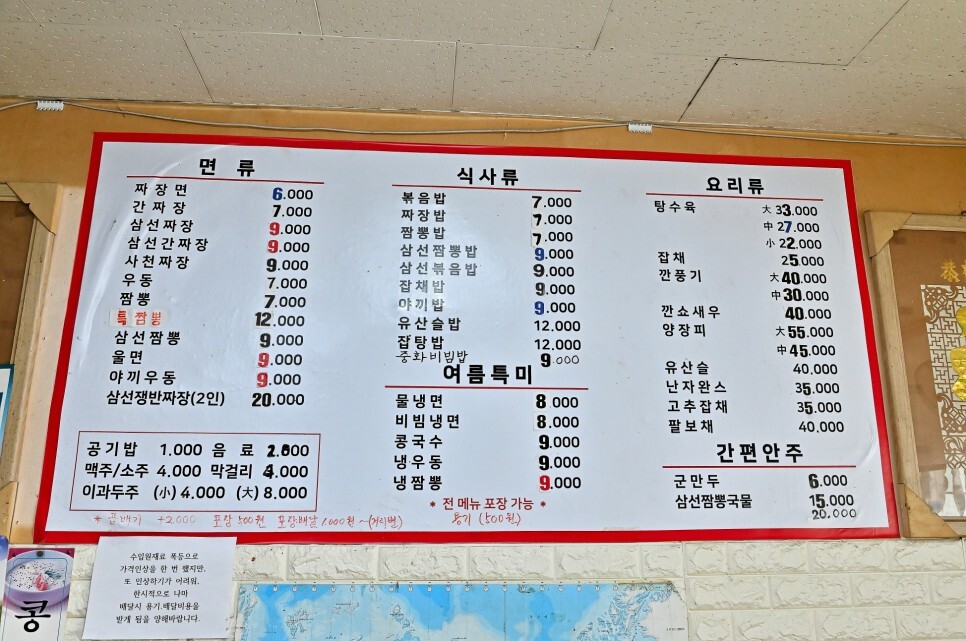 면 류
짜장면 6.000
간짜장 7.000
삼선짜장 9.000
삼선간짜장 9.000
사천짜장 9.000
우동 7.000
짬뽕 7.000
특짬뽕 12.000
삼선짬뽕 9.000
울면 9.000
야끼우동 9.000
삼선쟁반짜장(2인) 20.000
공기밥 1.000 음 료 2.000
맥주/소주 4.000 막걸리 4.000
이과두주 (小) 4.000 (大) 8.000
* 곱배기 +2,000 포장 500원 포장배달 1,000원 ~ (거리별)
식사류
볶음밥 7.000
짜장밥 7.000
짬뽕밥 7.000
삼선짬뽕밥 9.000
삼선볶음밥 9.000
잡채밥 9.000
야끼밥 9.000
유산슬밥 12.000
잡탕밥 12.000
중화비빔밥 9.000
여름특미
물냉면 8.000
비빔냉면 8.000
콩국수 9.000
냉우동 9.000
냉짬뽕 9.000
* 전 메뉴 포장 가능 *
용기 (500원)
요리류
탕수육 大 33.000
中 27.000
小 22.000
잡채 25.000
깐풍기 大 40.000
中 30.000
깐쇼새우 40.000
양장피 大 55.000
中 45.000
유산슬 40.000
난자완스 35.000
고추잡채 35.000
팔보채 40.000
간편안주
군만두 6.000
삼선짬뽕국물 15.000
20.000
수입원재료 폭등으로
가격인상을 한 번 했지만,
또 인상하기가 어려워,
한시적으로 나마
배달시 용기.배달비용을
받게 됨을 양해바랍니다.
콩